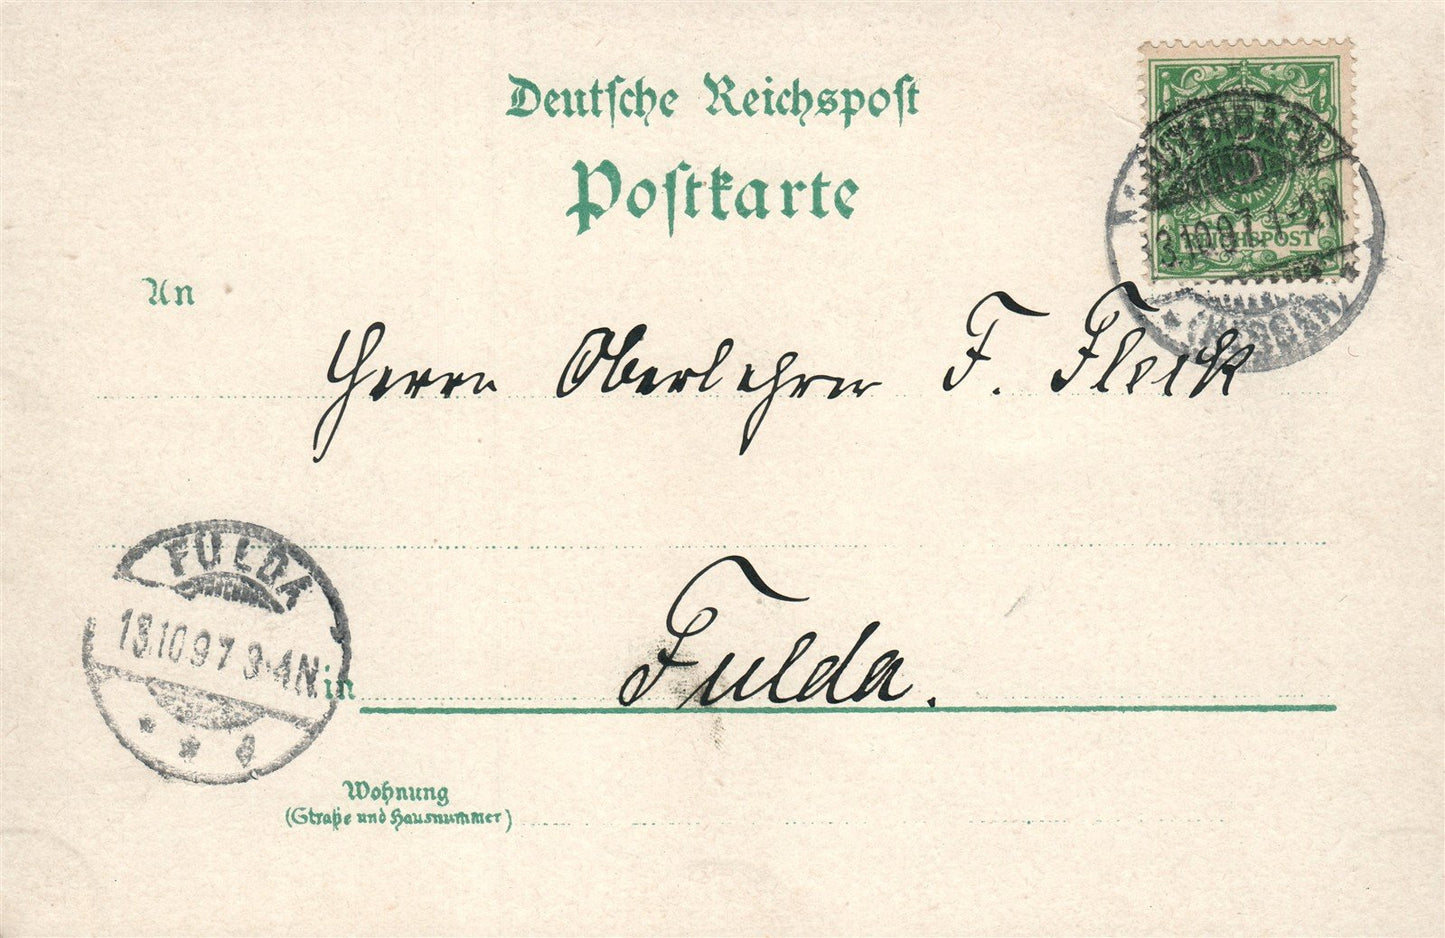 Deutsche Reichspost
Postkarte
REICHSPOST
13.10.97. 1-2N
An
Herrn Oberlehrer F. Fleck
FULDA
13.10.97 3-4N
in Fulda.
Wohnung
(Straße und Hausnummer)